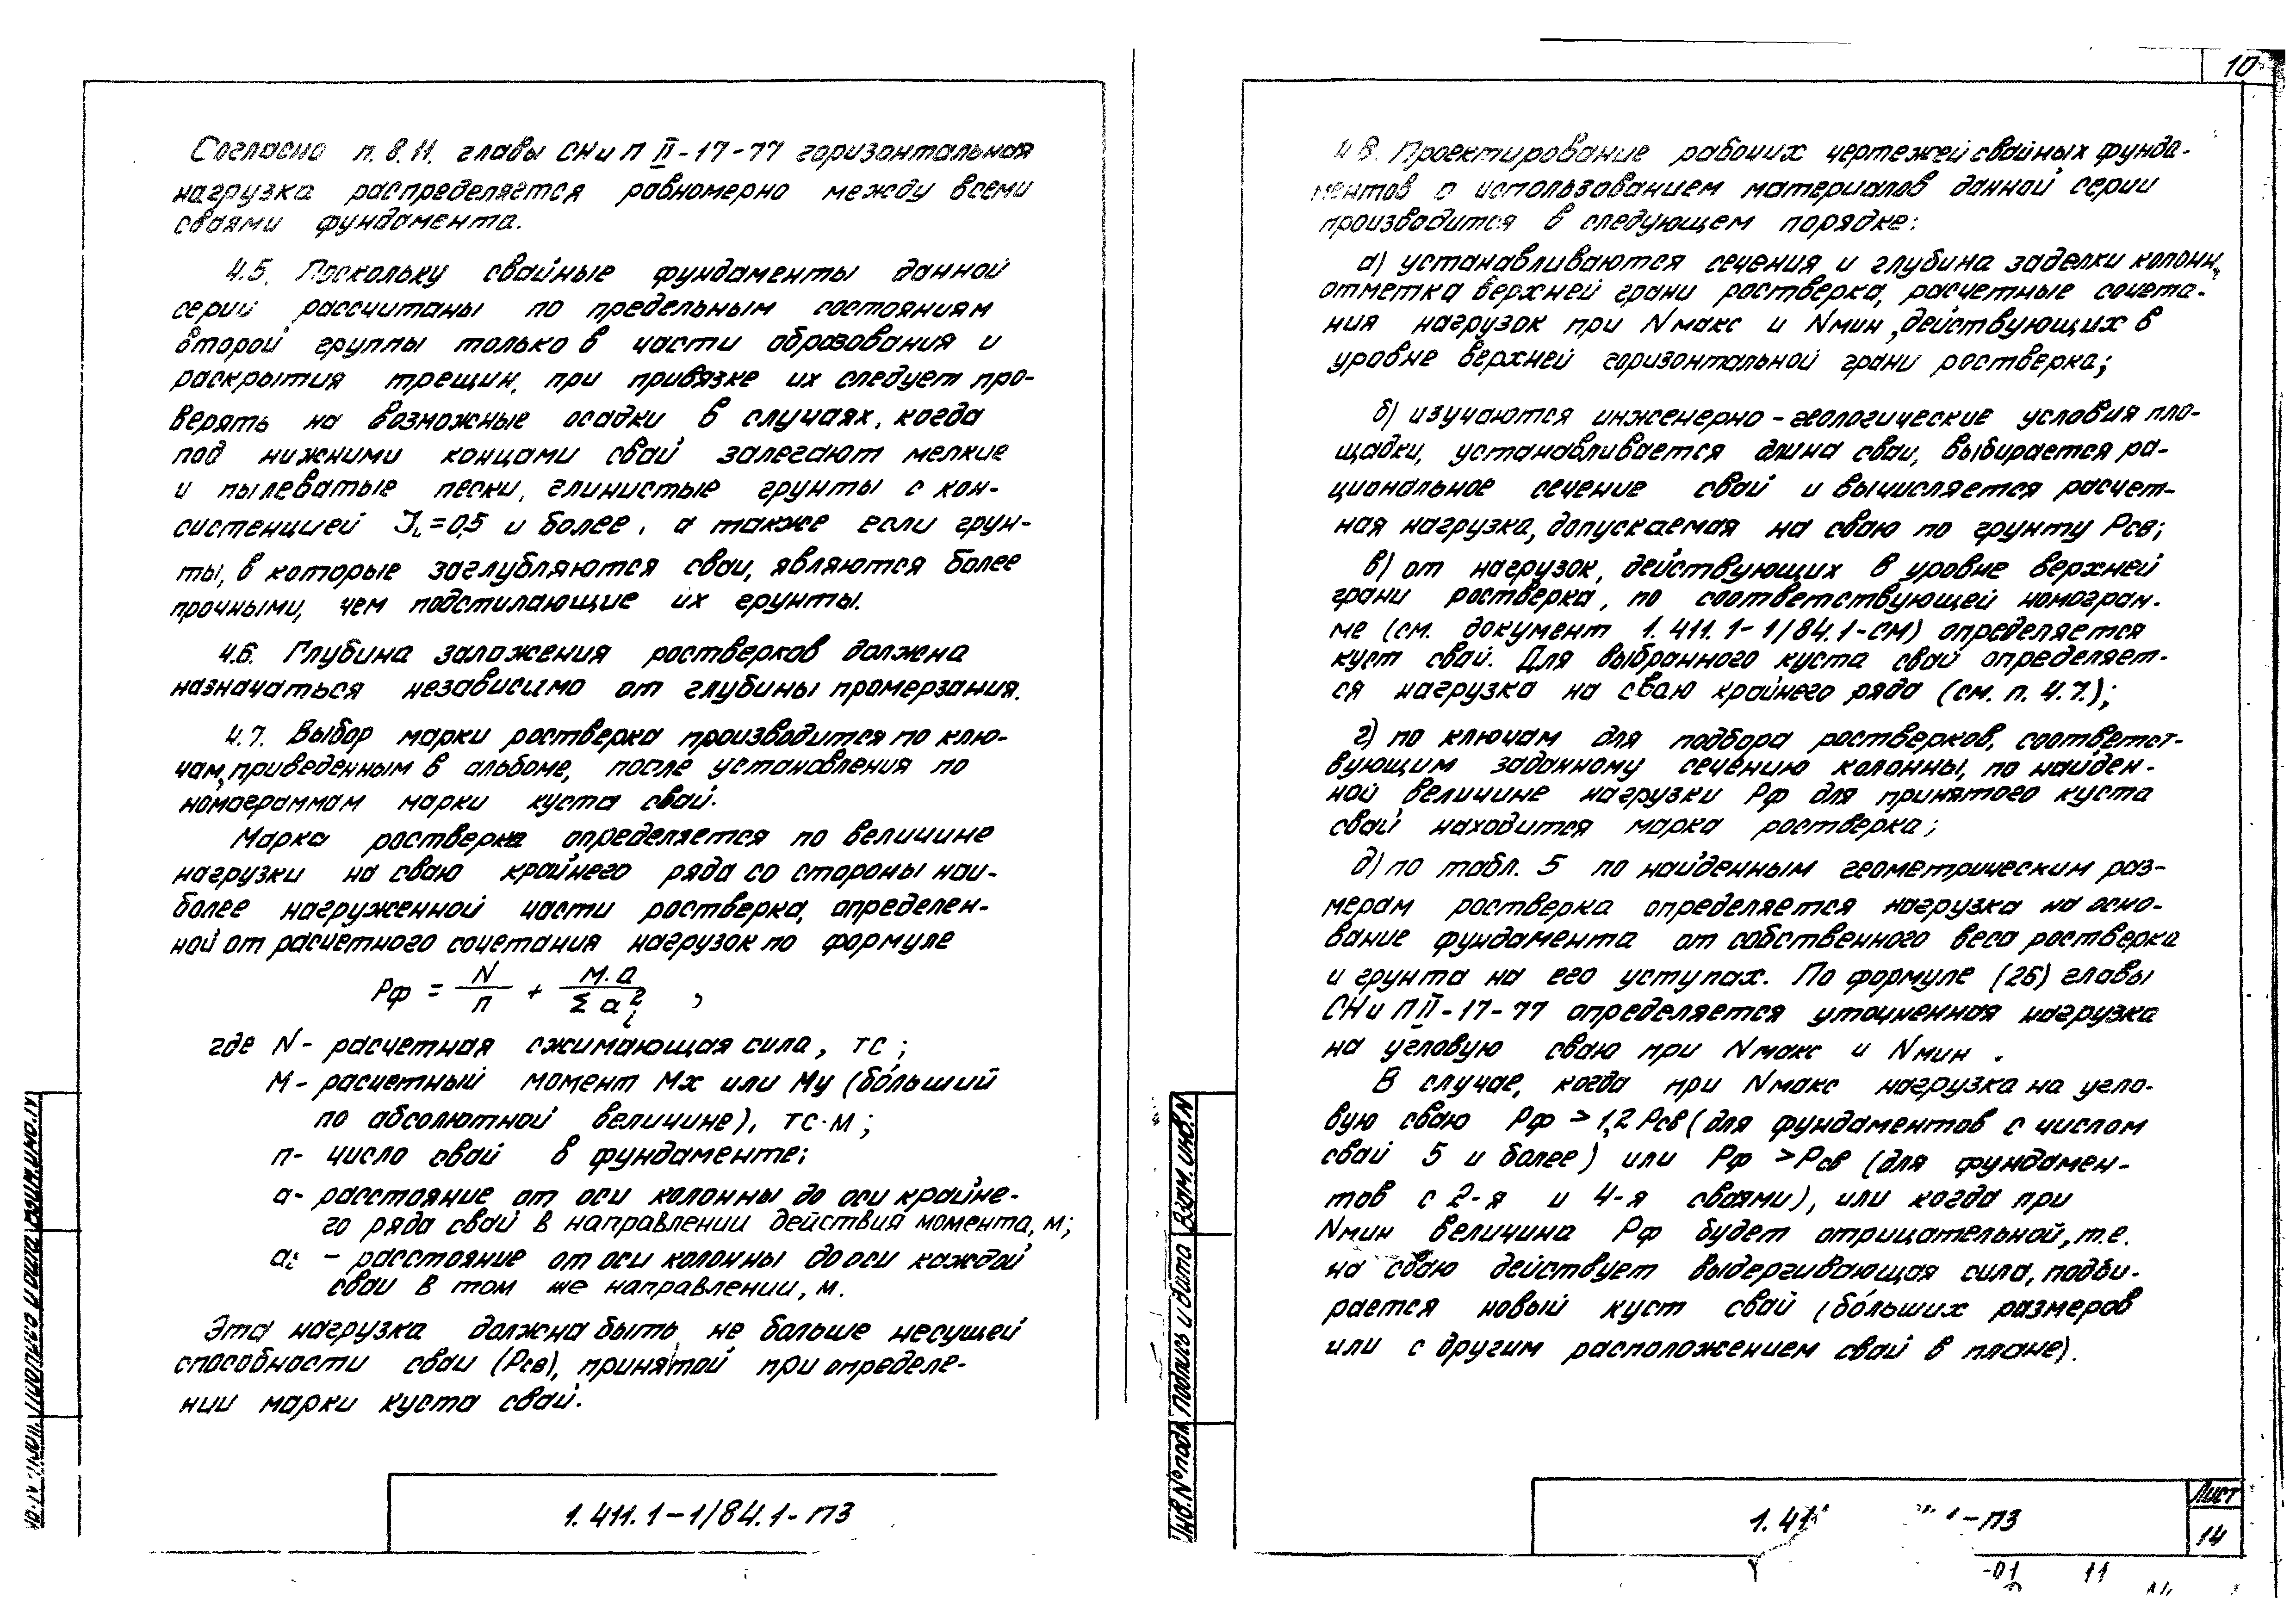 Согласно п. 8.11. главы СНиП II-17-77 горизонтальная
нагрузка распределяется равномерно между всеми
сваями фундамента.
4.5. Поскольку свайные фундаменты данной
серии рассчитаны по предельным состояниям
второй группы только в части образования и
раскрытия трещин, при привязке их следует про-
верять на возможные осадки в случаях, когда
под нижними концами свай залегают мелкие
и пылеватые пески, глинистые грунты с кон-
систенцией JL=0,5 и более, а также если грун-
ты, в которые заглубляются сваи, являются более
прочными, чем подстилающие их грунты.
4.6. Глубина заложения ростверков должна
назначаться независимо от глубины промерзания.
4.7. Выбор марки ростверка производится по клю-
чам, приведенным в альбоме, после установления по
номограммам марки куста свай.
Марка ростверка определяется по величине
нагрузки на сваю крайнего ряда со стороны наи-
более нагруженной части ростверка, определен-
ной от расчетного сочетания нагрузок по формуле
Рф = N/п + М.а/Σаi² ,
где N- расчетная сжимающая сила, тс;
М- расчетный момент Мх или Му (бо́льший
по абсолютной величине), тс·м;
п- число свай в фундаменте;
а- расстояние от оси колонны до оси крайне-
го ряда свай в направлении действия момента, м;
аi - расстояние от оси колонны до оси каждой
сваи в том же направлении, м.
Эта нагрузка должна быть не больше несущей
способности сваи (Рсв), принятой при определе-
нии марки куста свай.
1.411.1-1/84.1-ПЗ
10
4.8. Проектирование рабочих чертежей свайных фунда-
ментов с использованием материалов данной серии
производится в следующем порядке:
а) устанавливаются сечения и глубина заделки колонн,
отметка верхней грани ростверка, расчетные сочета-
ния нагрузок при Nмакс и Nмин, действующих в
уровне верхней горизонтальной грани ростверка;
б) изучаются инженерно-геологические условия пло-
щадки, устанавливается длина сваи, выбирается ра-
циональное сечение свай и вычисляется расчет-
ная нагрузка, допускаемая на сваю по грунту Рсв;
в) от нагрузок, действующих в уровне верхней
грани ростверка, по соответствующей номограм-
ме (см. документ 1.411.1-1/84.1-СМ) определяется
куст свай. Для выбранного куста свай определяет-
ся нагрузка на сваю крайнего ряда (см. п. 4.7.);
г) по ключам для подбора ростверков, соответст-
вующим заданному сечению колонны, по найден-
ной величине нагрузки Рф для принятого куста
свай находится марка ростверка;
д) по табл. 5 по найденным геометрическим раз-
мерам ростверка определяется нагрузка на осно-
вание фундамента от собственного веса ростверка
и грунта на его уступах. По формуле (26) главы
СНиП II-17-77 определяется уточненная нагрузка
на угловую сваю при Nмакс и Nмин .
В случае, когда при Nмакс нагрузка на угло-
вую сваю Рф > 1,2 Рсв (для фундаментов с числом
свай 5 и более) или Рф > Рсв (для фундамен-
тов с 2-я и 4-я сваями), или когда при
Nмин величина Рф будет отрицательной, т.е.
на сваю действует выдергивающая сила, подби-
рается новый куст свай (бо́льших размеров
или с другим расположением свай в плане).
Инв.№подл. Подпись и дата Взам.инв.N
1.41 -ПЗ
Лист
14
-01 11